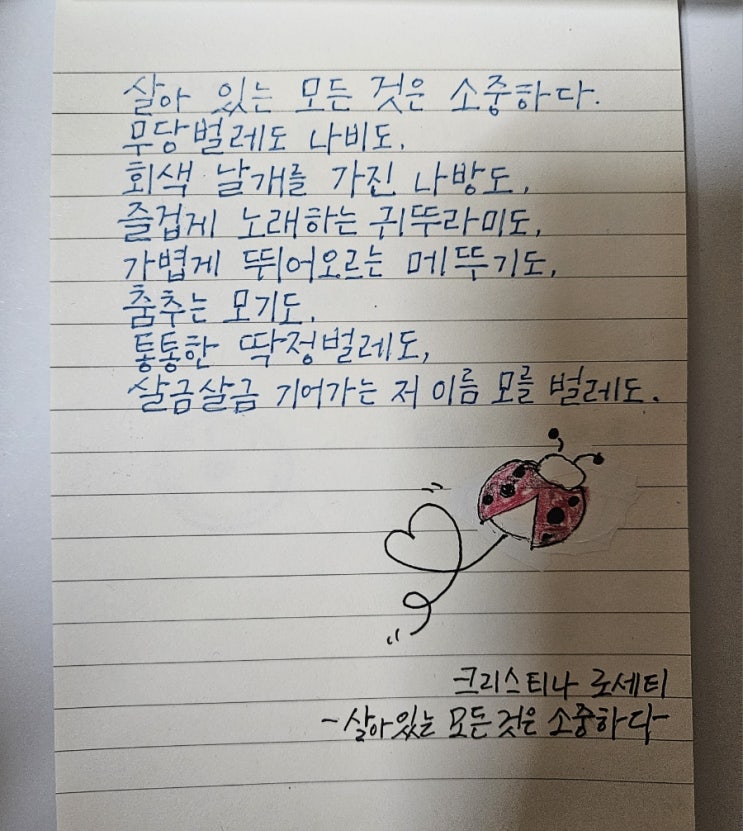 살아 있는 모든 것은 소중하다.
무당벌레도 나비도,
회색 날개를 가진 나방도,
즐겁게 노래하는 귀뚜라미도,
가볍게 뛰어오르는 메뚜기도,
춤추는 모기도,
통통한 딱정벌레도,
살금살금 기어가는 저 이름 모를 벌레도.
크리스티나 로세티
-살아있는 모든 것은 소중하다-